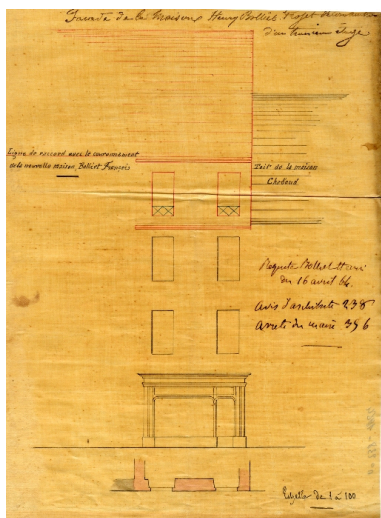 Façade de la Maison Henry Bolliet Projet
d'un troisième Étage
Ligne de raccord avec le couronnement
de la nouvelle maison Bolliet François
Toit de la maison
Chaboud
Requête Bolliet Henri
du 16 avril 64.
Avis d'architecte 238
Arreté du maire 396
Echelle de 1 à 100